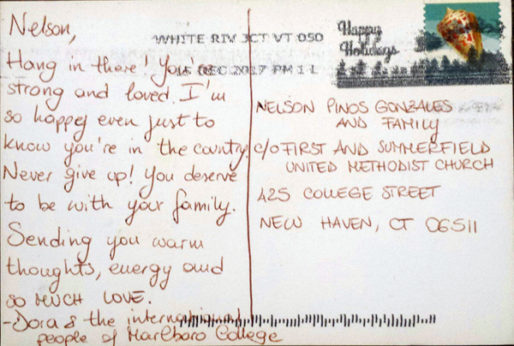 Nelson,
Hang in there! You're
strong and loved. I'm
so happy even just to
know you're in the country.
Never give up! You deserve
to be with your family.
Sending you warm
thoughts, energy and
so MUCH LOVE.
- Dora & the international
people of Marlboro College
WHITE RIV JCT VT 050
DEC 2017 PM 1 L
Happy
Holidays
NELSON PINOS GONZALES
AND FAMILY
c/o FIRST AND SUMMERFIELD
UNITED METHODIST CHURCH
425 COLLEGE STREET
NEW HAVEN, CT 06511